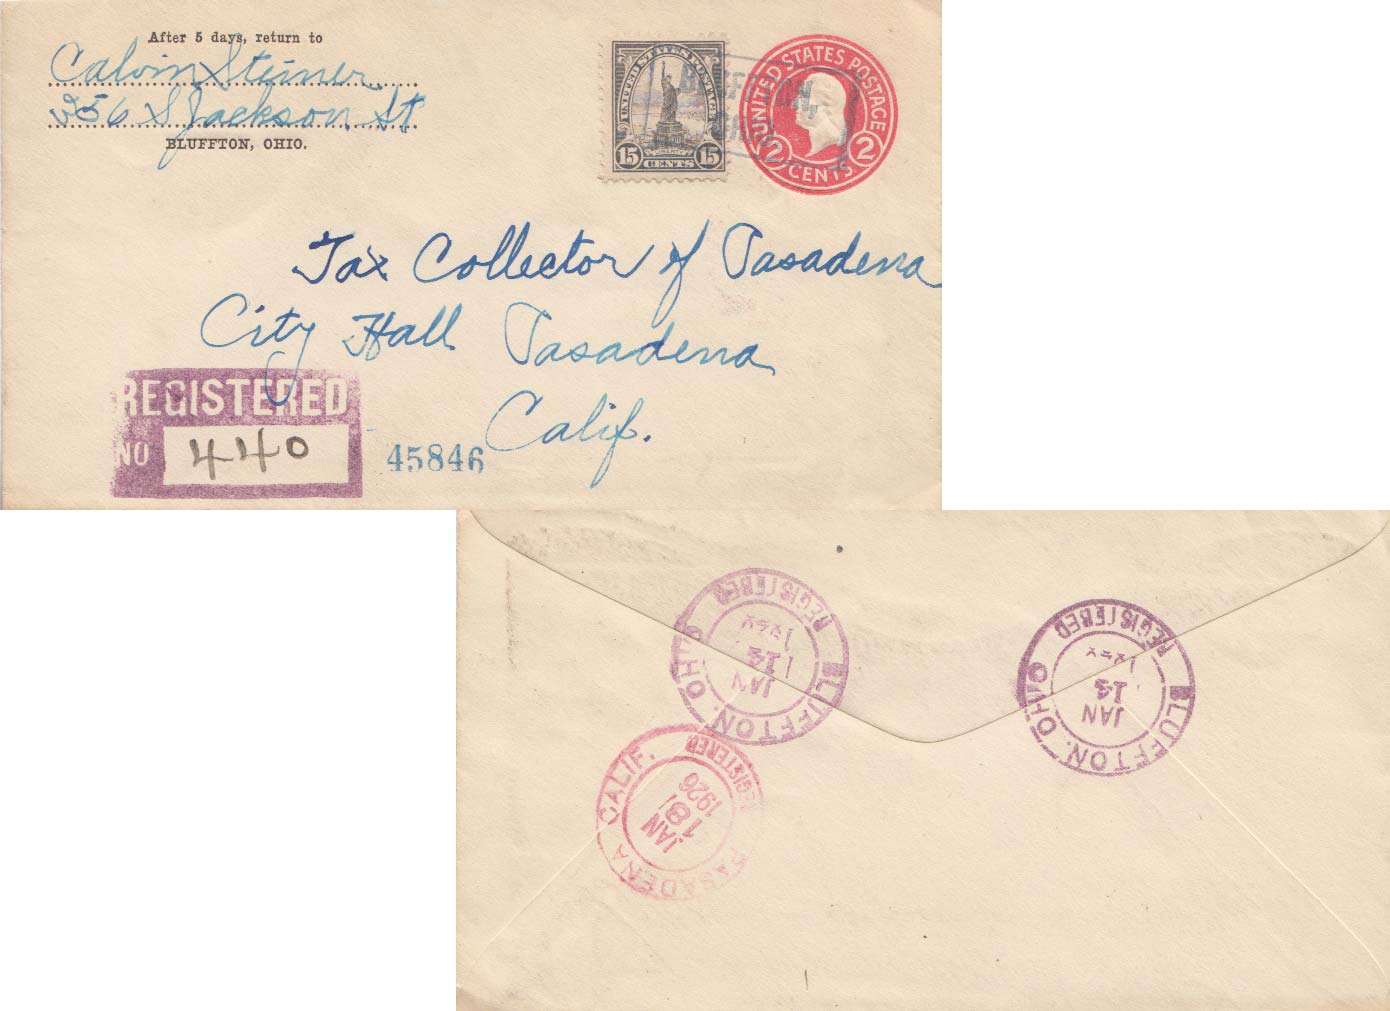 After 5 days, return to
Calvin Steiner
256 S Jackson St
BLUFFTON, OHIO.
UNITED STATES POSTAGE
LIBERTY
15 CENTS 15
UNITED STATES POSTAGE
2 CENTS 2
BLUFFTON,
OHIO
Tax Collector of Pasadena
City Hall Pasadena
Calif.
REGISTERED
NO 440
45846
BLUFFTON, OHIO
REGISTERED
JAN
14
BLUFFTON, OHIO
REGISTERED
JAN
14
PASADENA CALIF.
REGISTERED
JAN
18
1926